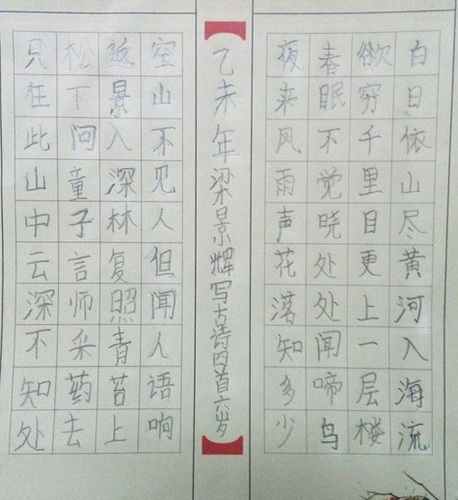 白日依山尽黄河入海流
欲穷千里目更上一层楼
春眠不觉晓处处闻啼鸟
夜来风雨声花落知多少
乙未年梁景辉写古诗四首六岁
空山不见人但闻人语响
返景入深林复照青苔上
松下问童子言师采药去
只在此山中云深不知处